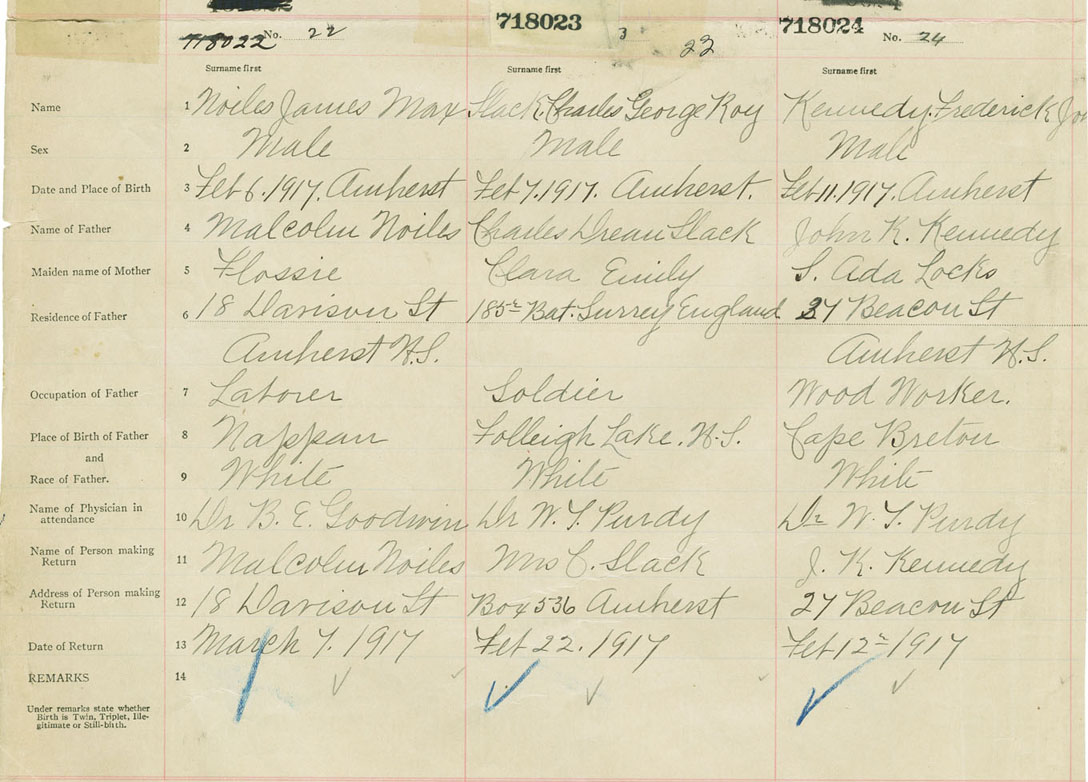 718022 No. 22 718023 3 23 718024 No. 24
Surname first Surname first Surname first
Name 1 Noiles James Max Slack. Charles George Roy Kennedy. Frederick
Sex 2 Male Male Male
Date and Place of Birth 3 Feb 6. 1917. Amherst Feb 7. 1917. Amherst. Feb 11. 1917. Amherst
Name of Father 4 Malcolm Noiles Charles Slack John K. Kennedy
Maiden name of Mother 5 Flossie Clara Emily S. Ada Locks
Residence of Father 6 18 Davison St 185th Bat. Surrey England 27 Beacon St
Amherst N.S. Amherst N.S.
Occupation of Father 7 Laborer Soldier Wood Worker.
Place of Birth of Father 8 Nappan Folleigh Lake. N.S. Cape Breton
and
Race of Father. 9 White White White
Name of Physician in
attendance 10 Dr B. E. Goodwin Dr W. T. Purdy Dr W. T. Purdy
Name of Person making
Return 11 Malcolm Noiles Mrs C. Slack J. K. Kennedy
Address of Person making
Return 12 18 Davison St Box 536 Amherst 27 Beacon St
Date of Return 13 March 7. 1917 Feb 22. 1917 Feb 12th 1917
REMARKS 14
Under remarks state whether
Birth is Twin, Triplet, Ille-
gitimate or Still-birth.